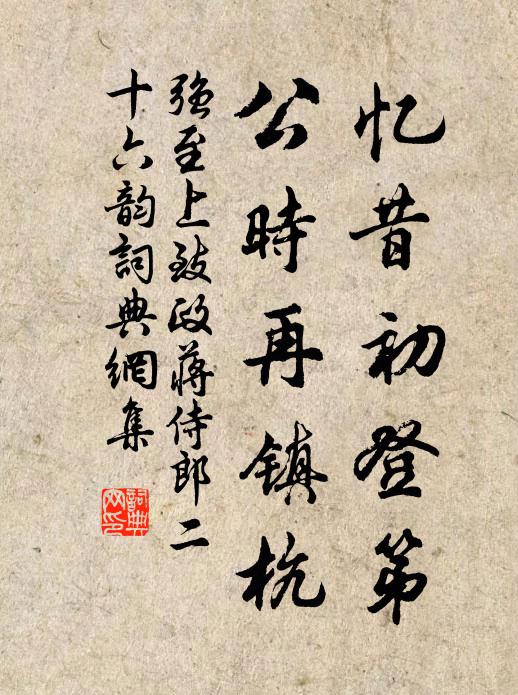 忆昔初登第
公時再镇杭
强至上致政蒋侍郎二
十六韵詞典網集
詞典
网印